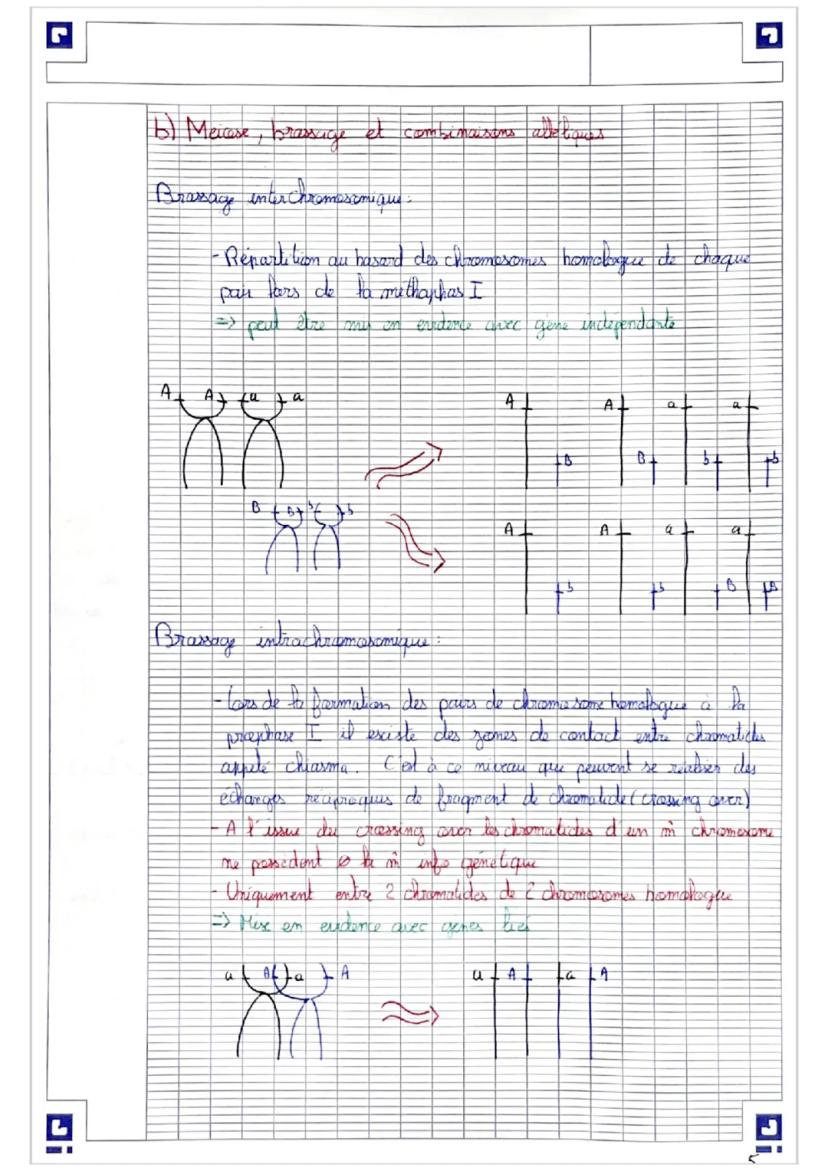 b) Meiose, brassage et combinaisons alléliques
Brassage interchromosomique :
- Répartition au hasard des chromosomes homologue de chaque
pair lors de la methaphas I
=> peut être mis en evidence avec gène independants
A A a a
A A a a
B B b b
B B b b
A A a a
b b B B
Brassage intrachromosomique :
- Lors de la formation des pairs de chromosome homologue à la
prophase I il existe des zones de contact entre chromatides
appelé chiasma. C'est à ce niveau que peuvent se réaliser des
échanges réciproques de fragment de chromatide (crossing over)
- A l'issue du crossing over les chromatides d'un m̂ chromosome
ne possèdent ø la m̂ info génétique
- Uniquement entre 2 chromatides de 2 chromosomes homologue
=> Mise en evidence avec gènes liés
a A a A
a A a A
5